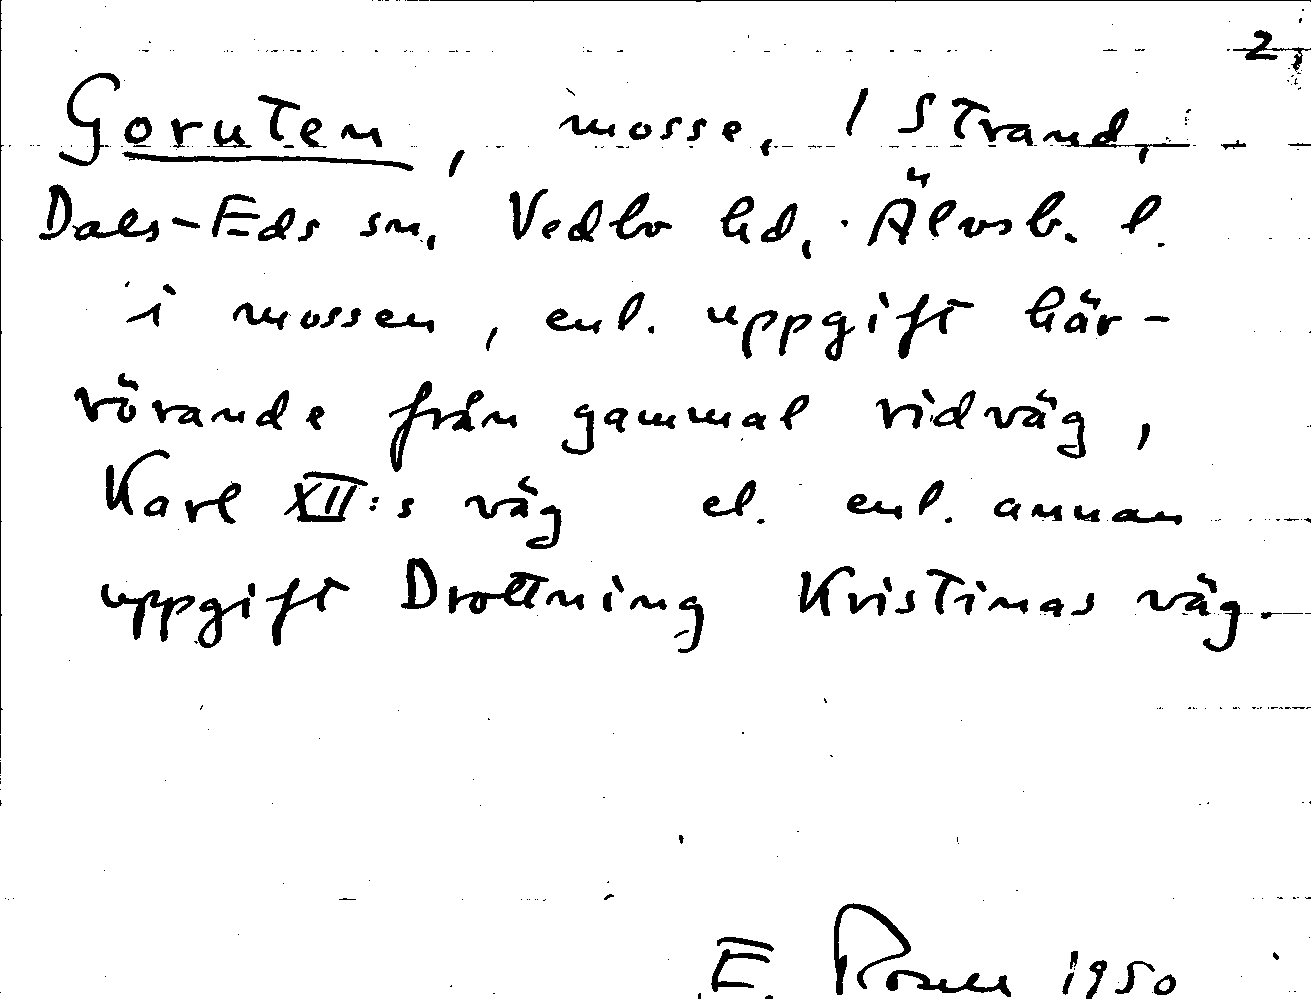 2
Goruten, mosse, / Strand,
Dals-Eds sn, Vedbo hd, Älvsb. l.
i mossen, enl. uppgift här-
rörande från gammal ridväg,
Karl XII:s väg el. enl. annan
uppgift Drottning Kristinas väg.
E. Rosell 1950